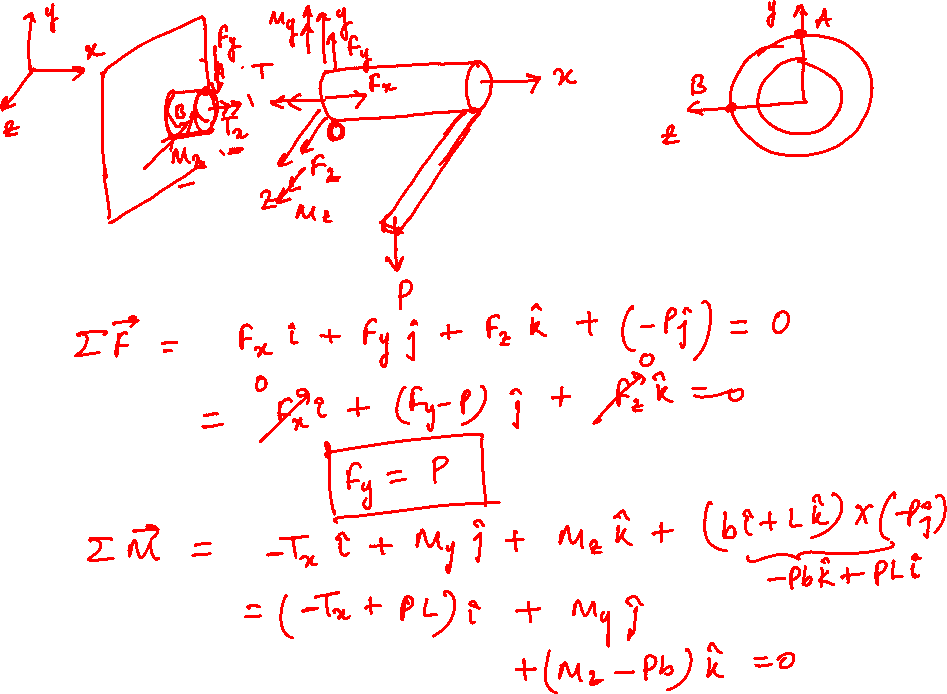 y
x
z
Fy
A
T
B
Tx
Mz
My
y
Fy
Fx
x
O
Fz
z
Mz
P
y
A
B
z
ΣF⃗ = Fx î + Fy ĵ + Fz k̂ + (-Pĵ) = 0
= Fx î + (Fy-P) ĵ + Fz k̂ = 0
0
0
Fy = P
ΣM⃗ = -Tx î + My ĵ + Mz k̂ + (bî + Lk̂) × (-Pĵ)
-Pbk̂ + PLî
= (-Tx + PL) î + My ĵ
+ (Mz - Pb) k̂ = 0